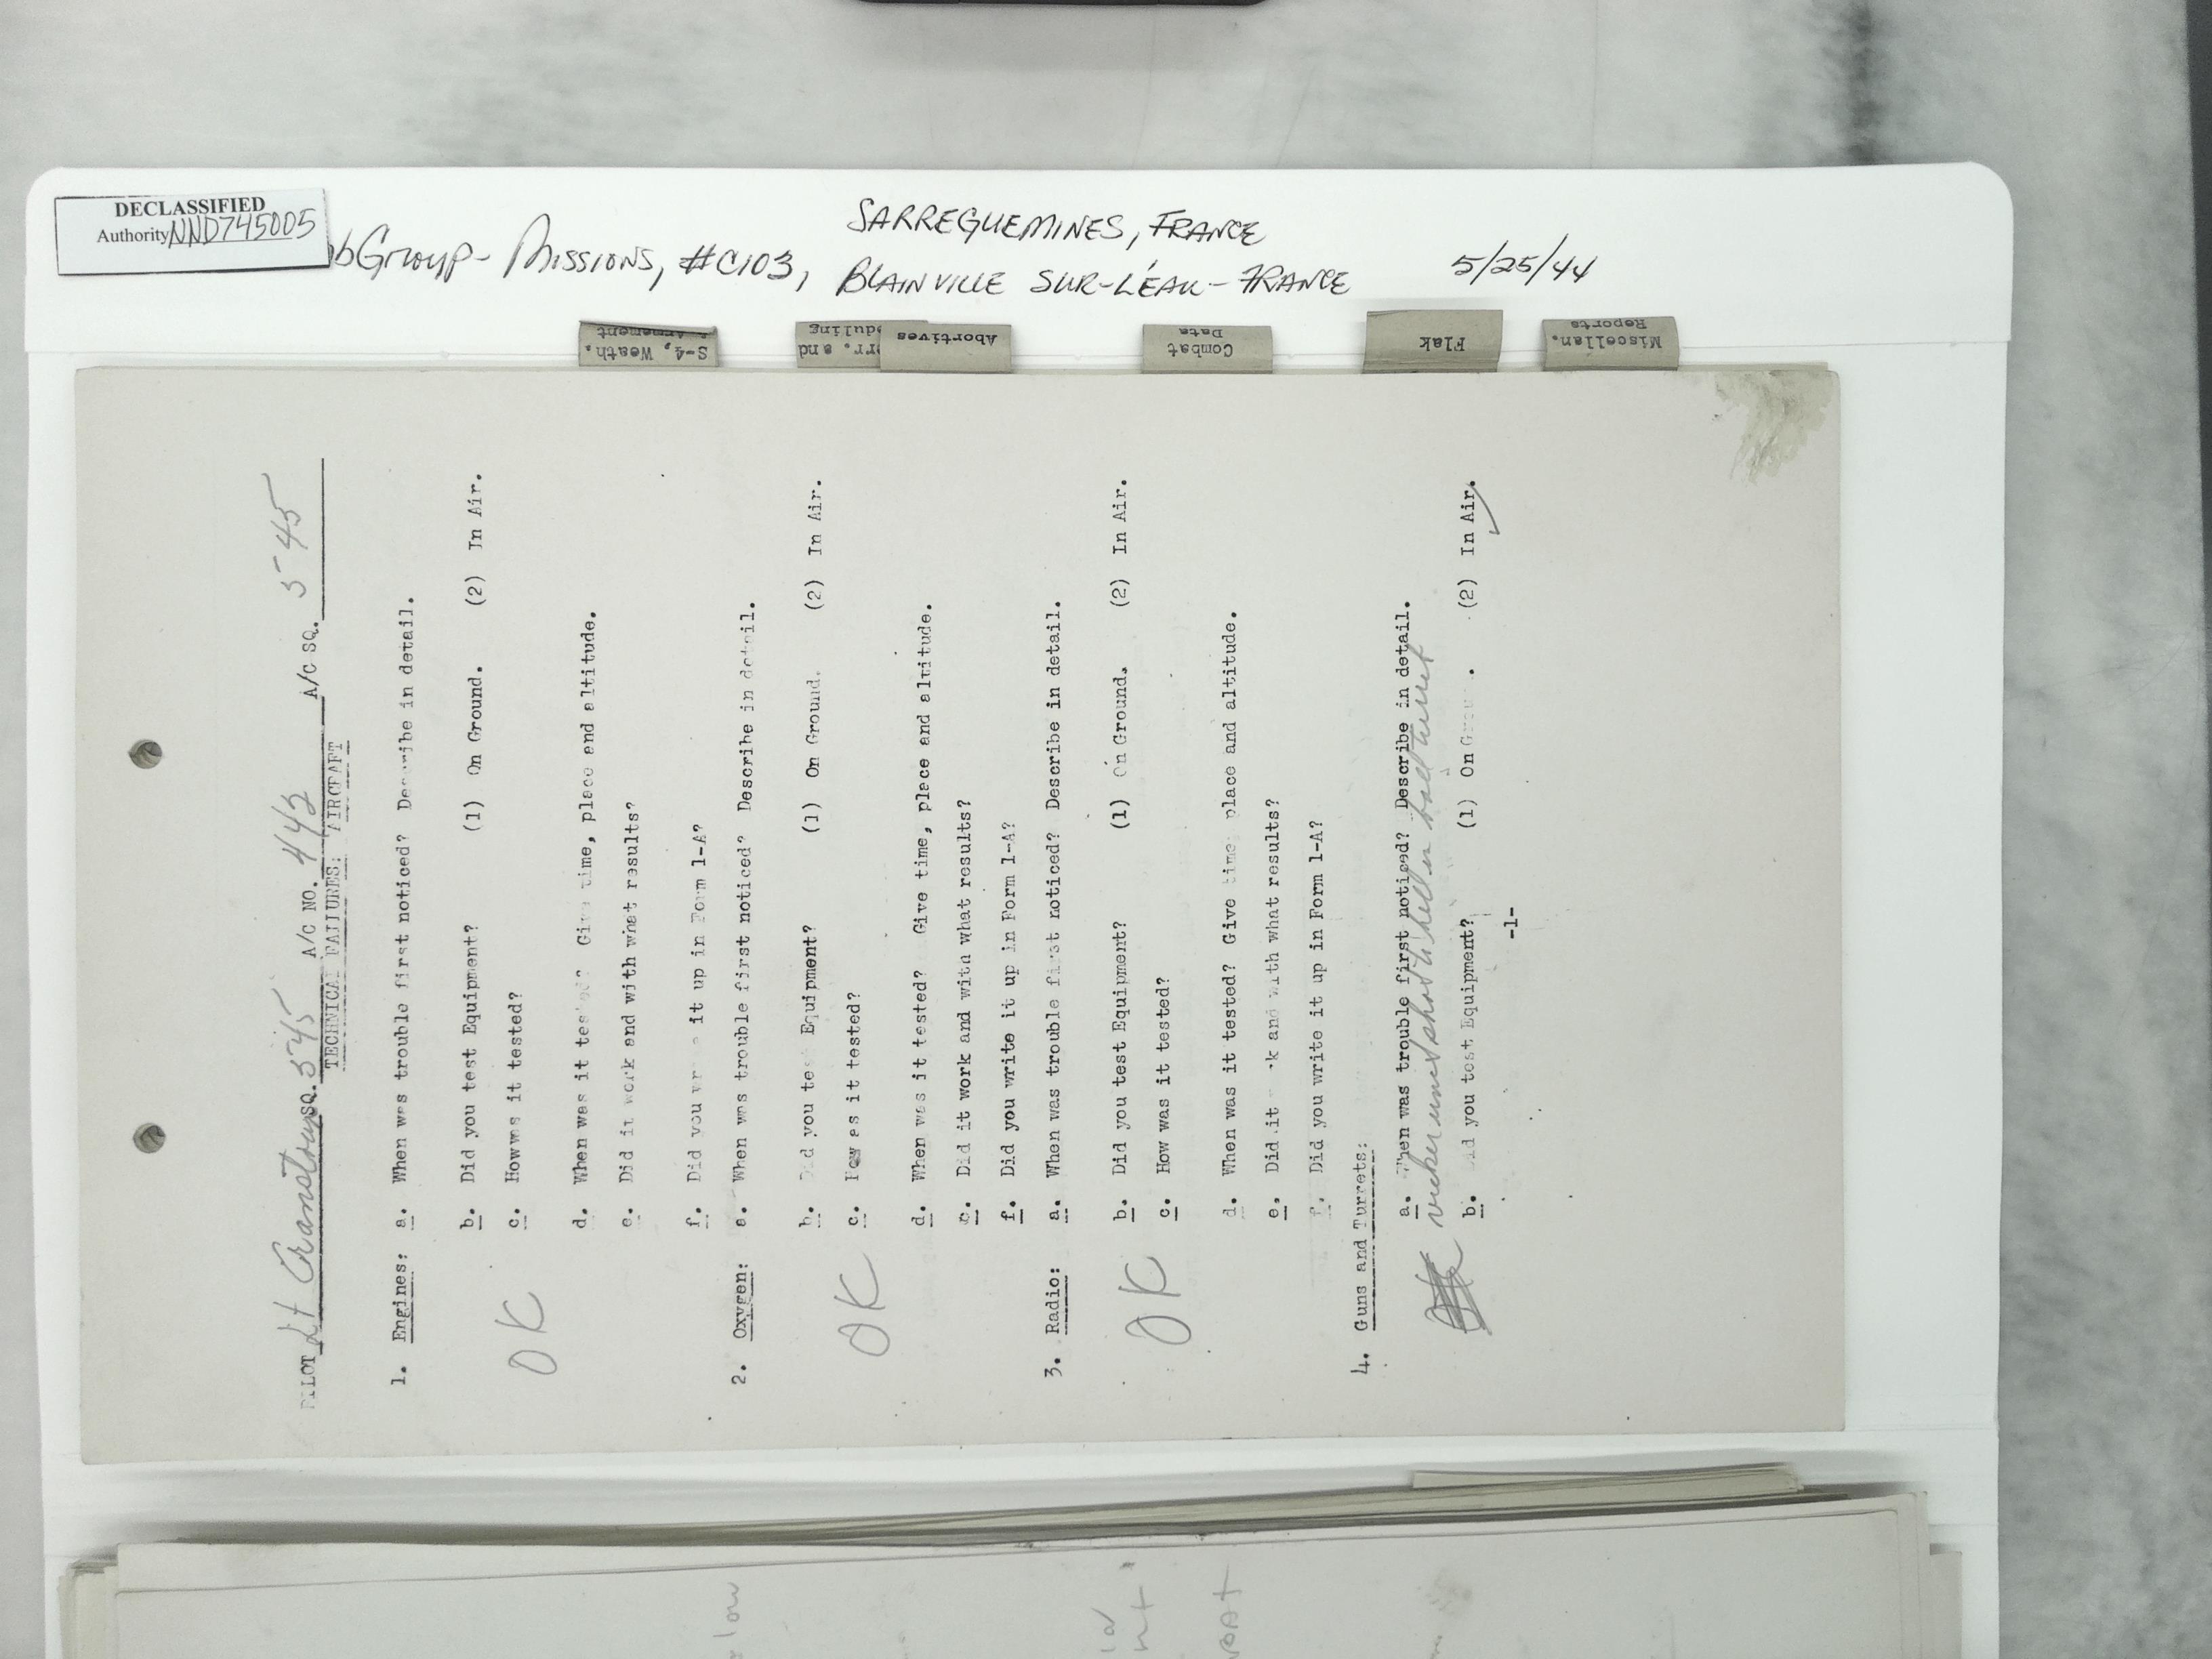 DECLASSIFIED
Authority NND745005
bGroup- Missions, #C103,
SARREGUEMINES, FRANCE
BLAINVILLE SUR-L'EAU - FRANCE
5/25/44
S-4, Weath.
& Armement
rr. and
duling
Abortives
Combat
Data
Flak
Miscellan.
Reports
PILOT Lt SQ. 545 A/C NO. 443 A/C SQ. 545
TECHNICAL FAILURES: AIRCRAFT
1. Engines: a. When was trouble first noticed? Describe in detail.
b. Did you test Equipment? (1) On Ground. (2) In Air.
c. How was it tested?
OK
d. When was it tested? Give time, place and altitude.
e. Did it work and with what results?
f. Did you write it up in Form 1-A?
2. Oxygen: a. When was trouble first noticed? Describe in detail.
b. Did you test Equipment? (1) On Ground. (2) In Air.
c. How as it tested?
OK
d. When was it tested? Give time, place and altitude.
e. Did it work and with what results?
f. Did you write it up in Form 1-A?
3. Radio: a. When was trouble first noticed? Describe in detail.
b. Did you test Equipment? (1) On Ground. (2) In Air.
OK
c. How was it tested?
d. When was it tested? Give time, place and altitude.
e. Did it work and with what results?
f. Did you write it up in Form 1-A?
4. Guns and Turrets:
a. When was trouble first noticed? Describe in detail.
ball turret
b. Did you test Equipment? (1) On Ground. (2) In Air.
-1-
low